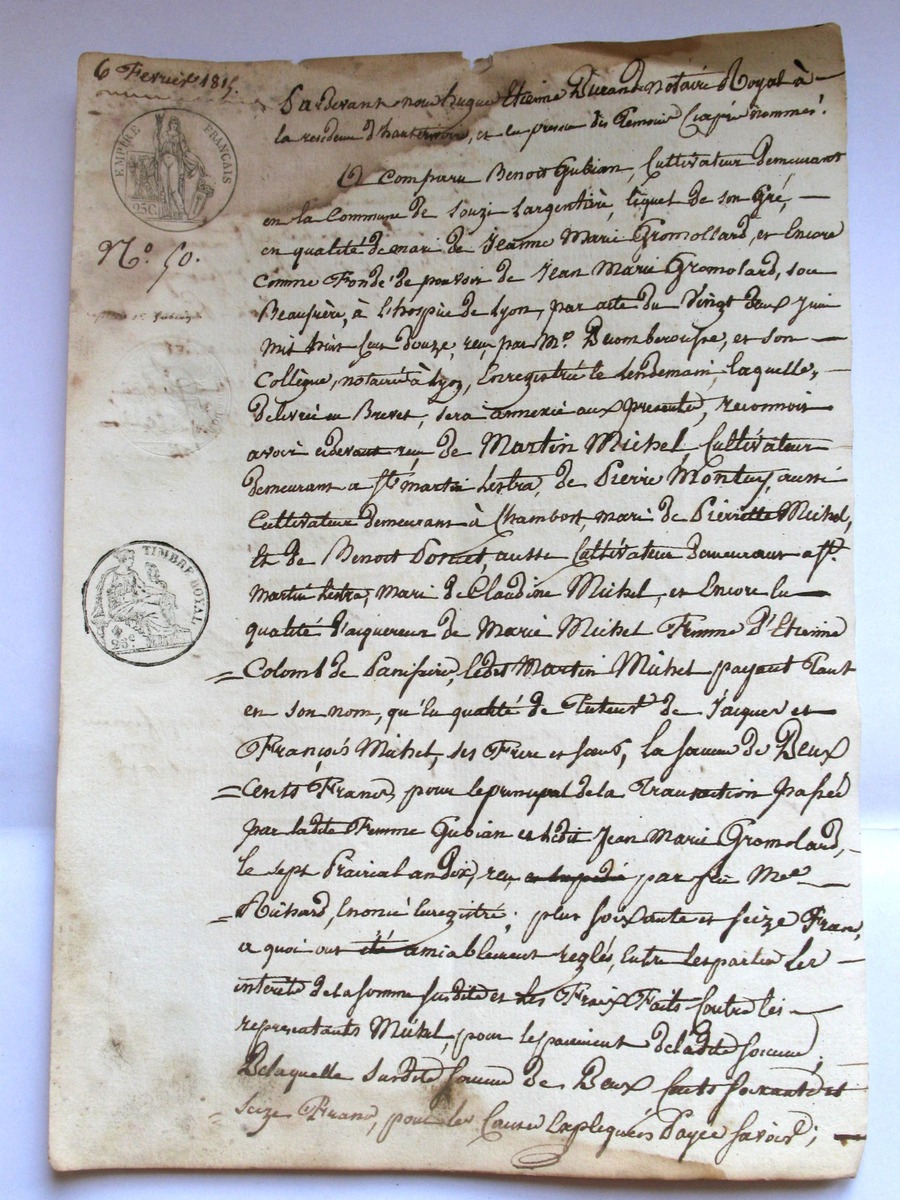 6 Fevrier 1815.
Pardevant nous hugue Etienne Durand Notaire Royal à
la residence d'hauterivoire, et en presence des Temoins Ciaprès nommés!
EMPIRE FRANÇAIS
25C.
A Comparu Benoit Gubian, Cultivateur demeurant
en la Commune de Souzi Largentière, lequel de son Gré,
N.º 50.
en qualité de mari de Jeanne Marie Gromollard, et Encore
Comme Fondé de pouvoir de Jean Marie Gromolard, son
Beaufrère, à Lhospice de Lyon, par acte du Vingt deux juin
Mil huit Cent douze, reçu par Mᵉ. Decomberousse, et son
Collègue, notaire à Lyon, Enregistrée le lendemain, laquelle,
delivrée en Brevet, sera annexée aux presente, reconnoit
avoir cidevant reçu de Martin Michel, Cultivateur
demeurant a St martin Lestra, de Pierre Montuy, aussi
Cultivateur demeurant à Chambost, mari de Pierrette Michel,
Et de Benoit aussi Cultivateur demeurant a St.
TIMBRE ROYAL
25c
Martin Lestra, mari de Claudine Michel, et Encore en
qualité d'aquereur de Marie Michel Femme d'Etienne
Colomb de Panissière, ledit Martin Michel payant Tant
en son nom, qu'en qualité de Tuteur de Jacques et
François Michel, ses Frere et sœur, la somme de Deux
Cents Francs, pour le principal de la Transaction passée
par ladite Femme Gubian et ledit Jean Marie Gromolard,
le sept Prairial an dix, reçu par feu Mee
Richard, Enoncé Enregistré; plus soixante et seize Francs,
a quoi ont été amiablement reglés, Entre les parties les
interets de la somme susdite et les Fraix Faits Contre les
representants Michel, pour le paiement de ladite somme;
De laquelle susdite somme de Deux Cents soixante et
seize Francs, pour les Causes Expliquées Payée savoir;